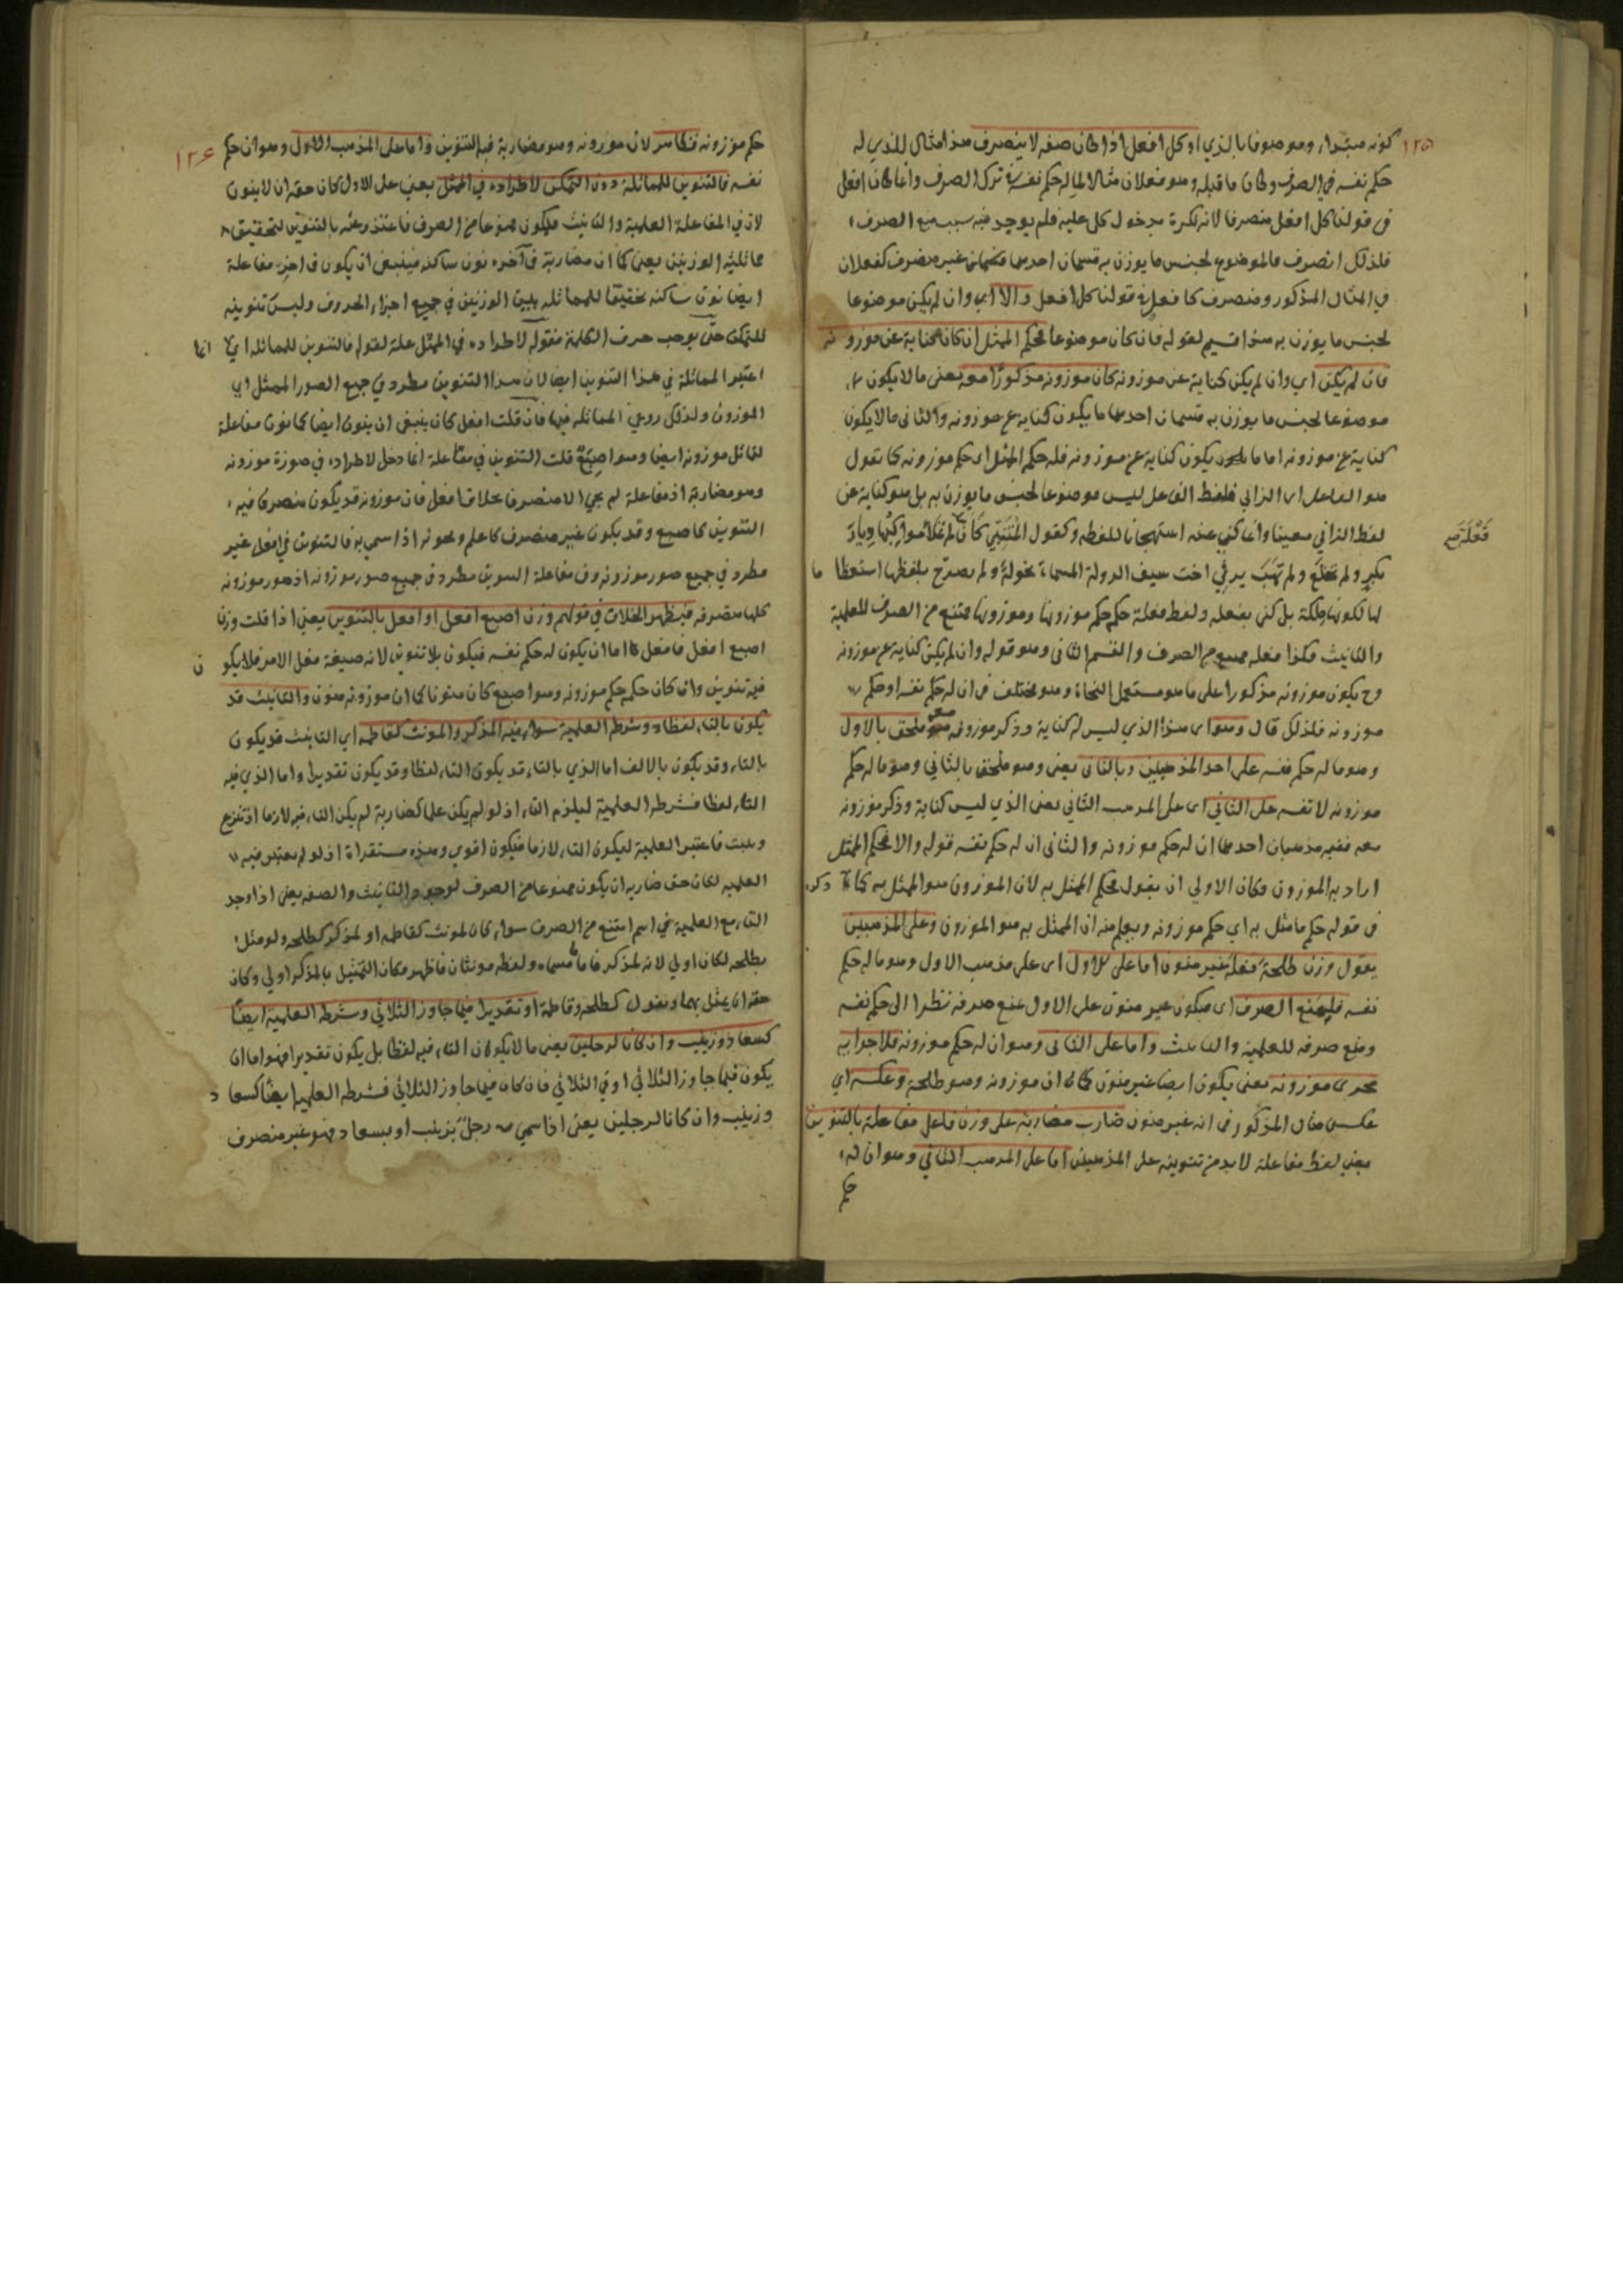 ١٢٥
كونه مبتداء وموصوفا بالذي او كل افعل اذا كان صفة لا ينصرف هذا مثال للذي له
حكم نفسه في الصرف وكان ما قبله وهو فعلان مثالا لما له حكم نفسه في ترك الصرف وانما كان افعل
في قولنا كل افعل منصرفا لانه نكرة مدخول كل عليه فلم يوجد فيه سبب منع الصرف
فلذلك انصرف فالموضوع لجنس ما يوزن به قسمان احدهما غير منصرف كفعلان
في المثال المذكور ومنصرف كافعل في قولنا كل افعل والا اي وان لم يكن موضوعا
لجنس ما يوزن به هذا قسيم لقوله فان كان موضوعا فحكم الممثل ان كان كناية عن موزونه
فان لم يكن اي وان لم يكن كناية عن موزونه كان موزونه مذكورا معه يعني ما لا يكون
موضوعا لجنس ما يوزن به قسمان احدهما ما يكون كناية عن موزونه والثاني ما لا يكون
كناية عن موزونه اما ما يكون كناية عن موزونه فله حكم الممثل اي حكم موزونه كما تقول
هو الفاعل اي الزاني فلفظ الفاعل ليس موضوعا لجنس ما يوزن به بل هو كناية عن
لفظ الزاني معينا وانما كني عنه استهجانا للفظه وكقول المتنبي كأن فعلة لم تملا مواكبها ديار
بكر ولم تخلع ولم تهب يرثي اخت سيف الدولة المسماة بخولة ولم يصرح بلفظها استعظاما
لها لكونها ملكة بل كنى بفعلة ولفظ فعلة حكمه حكم موزونها وموزونها ممتنع من الصرف للعلمية
والتانيث فكذا فعلة ممتنع من الصرف والقسم الثاني وهو قوله وان لم يكن كناية عن موزونه
وح يكون موزونه مذكورا على ما هو مستعمل النحاة وهو مختلف في ان له حكم نفسه او حكم
موزونه فلذلك قال وهو اي هذا الذي ليس له كناية وذكر موزونه معه ملحق بالاول
وهو ما له حكم نفسه على احد المذهبين وبالثاني يعني وهو ملحق بالثاني وهو ما له حكم
موزونه لا نفسه على الثاني اي على المذهب الثاني يعني الذي ليس كناية وذكر موزونه
معه ففيه مذهبان احدهما ان له حكم موزونه والثاني ان له حكم نفسه قوله والا فحكم الممثل
اراد به الموزون وكان الاولى ان يقول فحكم الممثل به لان الموزون هو الممثل به كما ذكره
في قوله حكم ما مثل به اي حكم موزونه ويعلم منه ان الممثل به هو الموزون وعلى المذهبين
يقول وزن طلحة فعلة غير منون اما على الاول اي على مذهب الاول وهو ما له حكم
نفسه فلمنع الصرف اي فيكون غير منون على الاول لمنع صرفه نظرا الى حكم نفسه
ومنع صرفه للعلمية والتانيث واما على الثاني وهو ان له حكم موزونه فلاجرائه
مجرى موزونه يعني يكون ايضا غير منون كما ان موزونه وهو طلحة وعكسه اي
عكس مثال المذكور في انه غير منون ضارب مضاربة على وزن فاعل مفاعلة بالتنوين
يعني لفظ مفاعلة لابد من تنوينه على المذهبين اما على المذهب الثاني وهو ان له
حكم
فعلة صح
١٢٦
حكم موزونه فظاهر لان موزونه وهو مضاربة فيه التنوين واما على المذهب الاول وهو ان حكم
نفسه فالتنوين للمماثلة دون التمكن لاطراده في الممثل يعني على الاول كان حقه ان لا ينون
لان في المفاعلة العلمية والتانيث فيكون ممنوعا من الصرف فاعتذر عنه بالتنوين لتحقيق
مماثلة الوزنين يعني كما ان مضاربة في آخره نون ساكنة فينبغي ان يكون في اخر مفاعلة
ايضا نون ساكنة تحقيقا للمماثلة بين الوزنين في جميع اجزاء الحروف وليس تنوينه
للتمكن حتى يوجب صرف الكلمة فقوله لاطراده في الممثل علة لقوله فالتنوين للمماثلة اي انما
اعتبر المماثلة في هذا التنوين ايضا لان هذا التنوين مطرد في جميع الصور الممثل اي
الموزون ولذلك روعي المماثلة فيها فان قلت افعل كان ينبغي ان ينون ايضا كما نون مفاعلة
لتماثل موزونه ايضا وهو اصبع قلت التنوين في مفاعلة انما دخل لاطراده في صورة موزونه
وهو مضاربة اذ مفاعلة لم يجئ الا منصرفا بخلاف افعل فان موزونه قد يكون منصرفا فيه
التنوين كاصبع وقد يكون غير منصرف كاعلم ونحوه اذا سمي به فالتنوين في افعل غير
مطرد في جميع صور موزونه وفي مفاعلة التنوين مطرد في جميع صور موزونه اذ صور موزونه
كلها منصرفة فيظهر الخلاف في قولهم وزن اصبع افعل او افعل بالتنوين يعني اذا قلت وزن
اصبع افعل فافعل اما ان يكون له حكم نفسه فيكون بلا تنوين لانه صيغة فعل الامر فلا يكون
فيه تنوين وان كان حكمه حكم موزونه وهو اصبع كان منونا كما ان موزونه منون والتانيث قد
يكون بالتاء لفظا وشرطه العلمية سواء فيه المذكر والمونث كفاطمة اي التانيث قد يكون
بالتاء وقد يكون بالالف اما الذي بالتاء قد يكون التاء لفظا وقد يكون تقديرا واما الذي فيه
التاء لفظا فشرطه العلمية ليلزم التاء اذ لو لم يكن علما كضاربة لم يكن التاء فيه لازما اذ تنزع
وتثبت فاعتبر العلمية ليكون التاء لازما فيكون اقوى وهذه مستقراة اذ لو لم يعتبر فيه
العلمية لكان حق ضاربة ان يكون ممنوعا من الصرف لوجود التانيث والصفة يعني اذا وجد
التاء مع العلمية في اسم امتنع من الصرف سواء كان لمونث كفاطمة او لمذكر كطلحة ولو مثل
بطلحة لكان اولى لانه لمذكر فاما مسماه ولفظه مونثان فاظهر فكان التمثيل بالمذكر اولى وكان
حقه ان يمثل بهما ويقول كطلحة وفاطمة او تقديرا فيما جاوز الثلاثي وشرطه العلمية ايضا
كسعاد وزينب وان كانا لرجلين يعني ما لا يكون التاء فيه لفظا بل يكون تقديرا فهو اما ان
يكون فيما جاوز الثلاثي او في الثلاثي فان كان فيما جاوز الثلاثي فشرطه العلمية ايضا كسعاد
وزينب وان كانا لرجلين يعني اذا سمي به رجل بزينب او بسعاد فهو غير منصرف